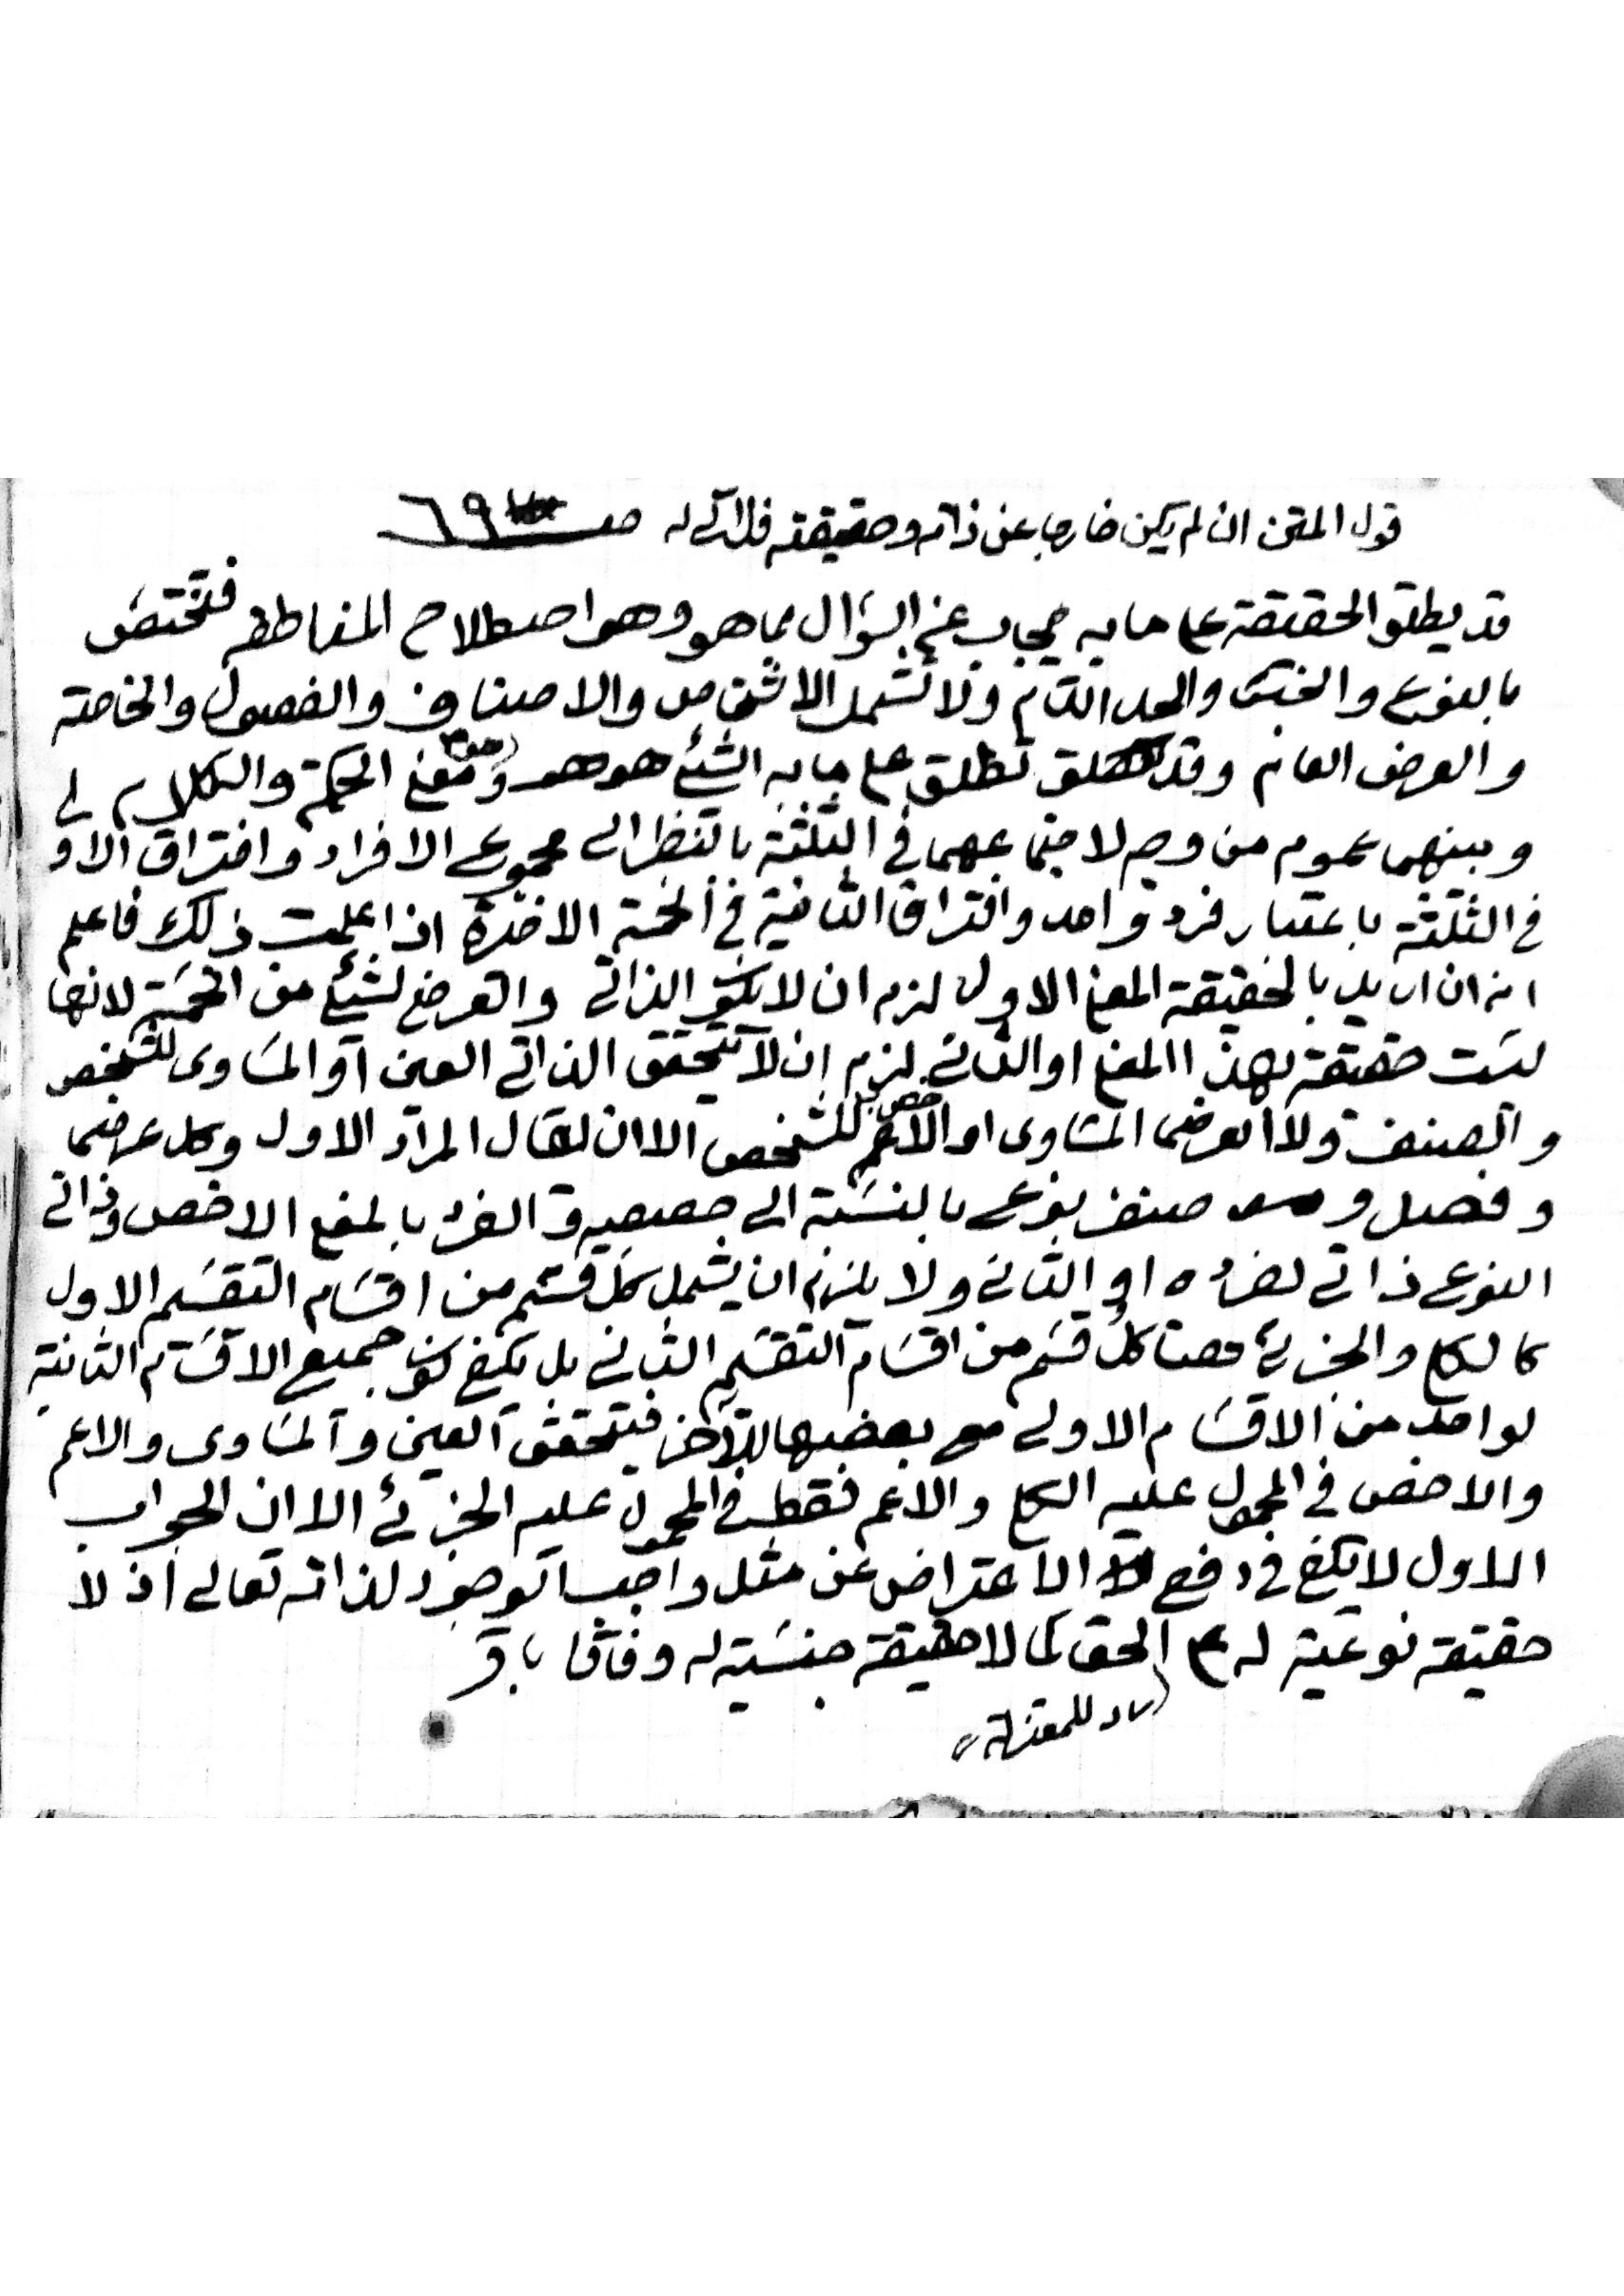 قول المتن ان لم يكن خارجا عن ذاته وحقيقته فذاتي له صـ ٦٩
قد يطلق الحقيقة على ما به يجاب عن السؤال بما هو وهو اصطلاح المناطقه فتختص
بالنوع والجنس والحد التام ولا تشمل الاشخاص والاصناف والفصول والخاصة
والعرض العام وقد تطلق على ما به الشئ هو هو وهو معنى الحكمة والكلام
وبينهما عموم من وجه لاجتماعهما في الثلثة بالنظر الى مجموع الافراد وافتراق الاولى
في الثلثة باعتبار فرد واحد وافتراق الثانية في الخمسة الاخيرة اذا علمت ذلك فاعلم
انه ان اريد بالحقيقة المعنى الاول لزم ان لا يكون الذاتي والعرضي لشئ من الخمسة لانها
ليست حقيقة بهذا المعنى او الثاني لزم ان لا يتحقق الذاتي العين او المساوي للشخص
والصنف ولا العرضي المساوي او الاعم للشخص الا ان يقال المراد الاول وكل عرضي
وفصل و صنف نوع بالنسبة الى حصصه والفرد بالمعنى الاخص وذاتي
النوع ذاتي لفرده او الثاني ولا يلزم ان يشمل كل قسم من اقسام التقسيم الاول
كالكلي والجزئي هنا كل قسم من اقسام التقسيم الثاني بل يكفي كون جميع الاقسام الثانية
لواحد من الاقسام الاولى مع بعضها للآخر فيتحقق العين والمساوي والاعم
والاخص في المحمول عليه الكلي والاعم فقط في المحمول عليه الجزئي الا ان الجواب
الاول لا يكفي في دفع الاعتراض عن مثل واجب الوجود لذاته تعالى اذ لا
حقيقة نوعية له على الحق كما لا حقيقة جنسية له وفاقا باقر
للمعتزلة